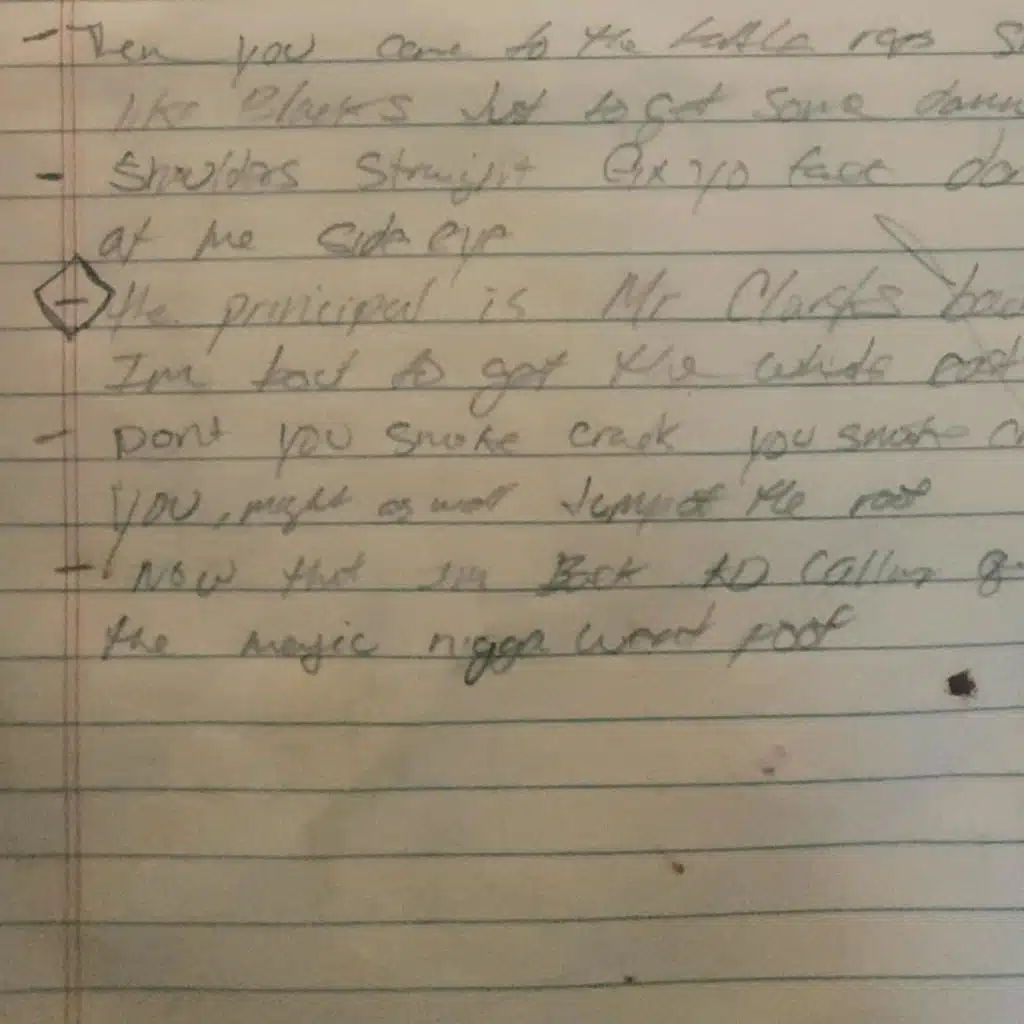 - Then you come to the battle raps
like Blacks Just to get some damn
- Shoulders Straight fix yo face
at me side eye
- the principal is Mr Clarks
Im to get the whole
- Dont you smoke crack you smoke
you might as well Jump of the roof
- Now that Im Back
the magic nigga word poof